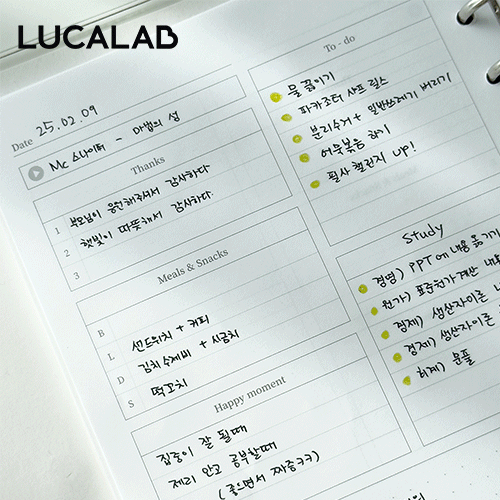 LUCALAB
Date 25.02.09
Mc 스나이퍼 - 마법의 성
Thanks
1 부모님이 응원해주셔서 감사하다
2 햇빛이 따뜻해서 감사하다.
3
Meals & Snacks
B
L 샌드위치 + 커피
D 김치수제비 + 시금치
S 떡꼬치
Happy moment
집중이 잘 될때
제리 안고 공부할때
(좋으면서 짜증ㅋㅋ)
To - do
물 끓이기
파카조터 샤프 릴스
분리수거 + 일반쓰레기 버리기
어묵볶음 하기
필사 챌린지 up!
Study
경영) PPT에 내용 옮기기
원가) 표준원가계산
경제) 생산자이론
경제) 생산자이론
회계) 분플